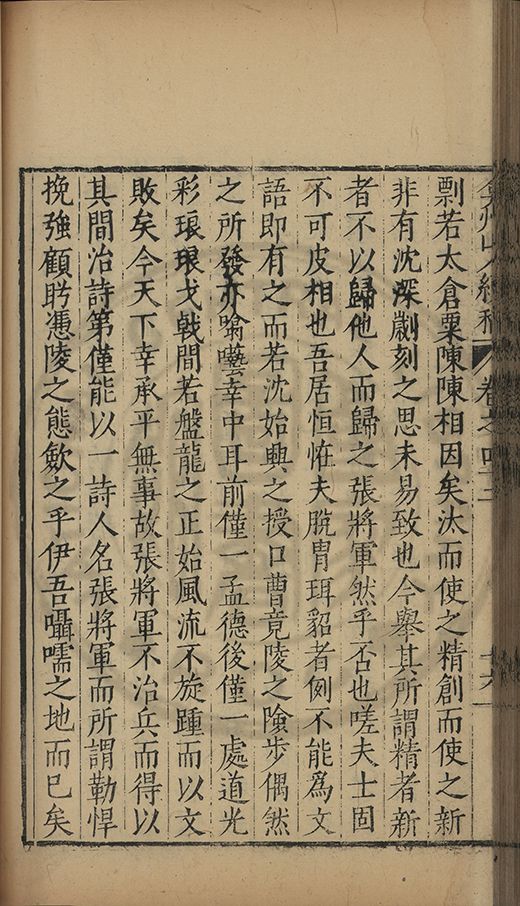 山人續稿 卷之四十
剽若太倉粟陳陳相因矣汰而使之精創而使之新
非有沈深劌刻之思未易致也今舉其所謂精者新
者不以歸他人而歸之張將軍然乎否也嗟夫士固
不可皮相也吾居恒恠夫脫冑珥貂者例不能爲文
語即有之而若沈始興之授口曹竟陵之險步偶然
之所發亦囈幸中耳前僅一孟德後僅一處道光
彩琅琅戈戟間若盤龍之正始風流不旋踵而以文
敗矣今天下幸承平無事故張將軍不治兵而得以
其間治詩第僅能以一詩人名張將軍而所謂勒悍
挽強顧盻慿陵之態斂之乎伊吾囁嚅之地而已矣